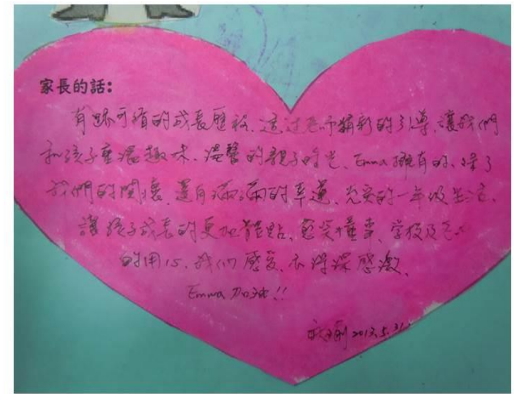 家長的話：
有跡可循的成長歷程，透过老师精彩的引導，讓我們
和孩子重溫趣味、溫馨的親子時光，Emma擁有的，除了
我們的関懷，還有滿滿的幸運，充实的一年级生活，
讓孩子成長的更加體貼、懂事，学校及老师
的用心，我們感受，亦深深感激，
Emma 加油!!
2013.5.31